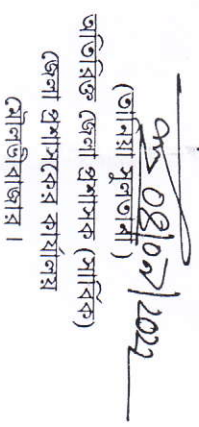 08/07/2022
(তানিয়া সুলতানা)
অতিরিক্ত জেলা প্রশাসক (সার্বিক)
জেলা প্রশাসকের কার্যালয়
মৌলভীবাজার।